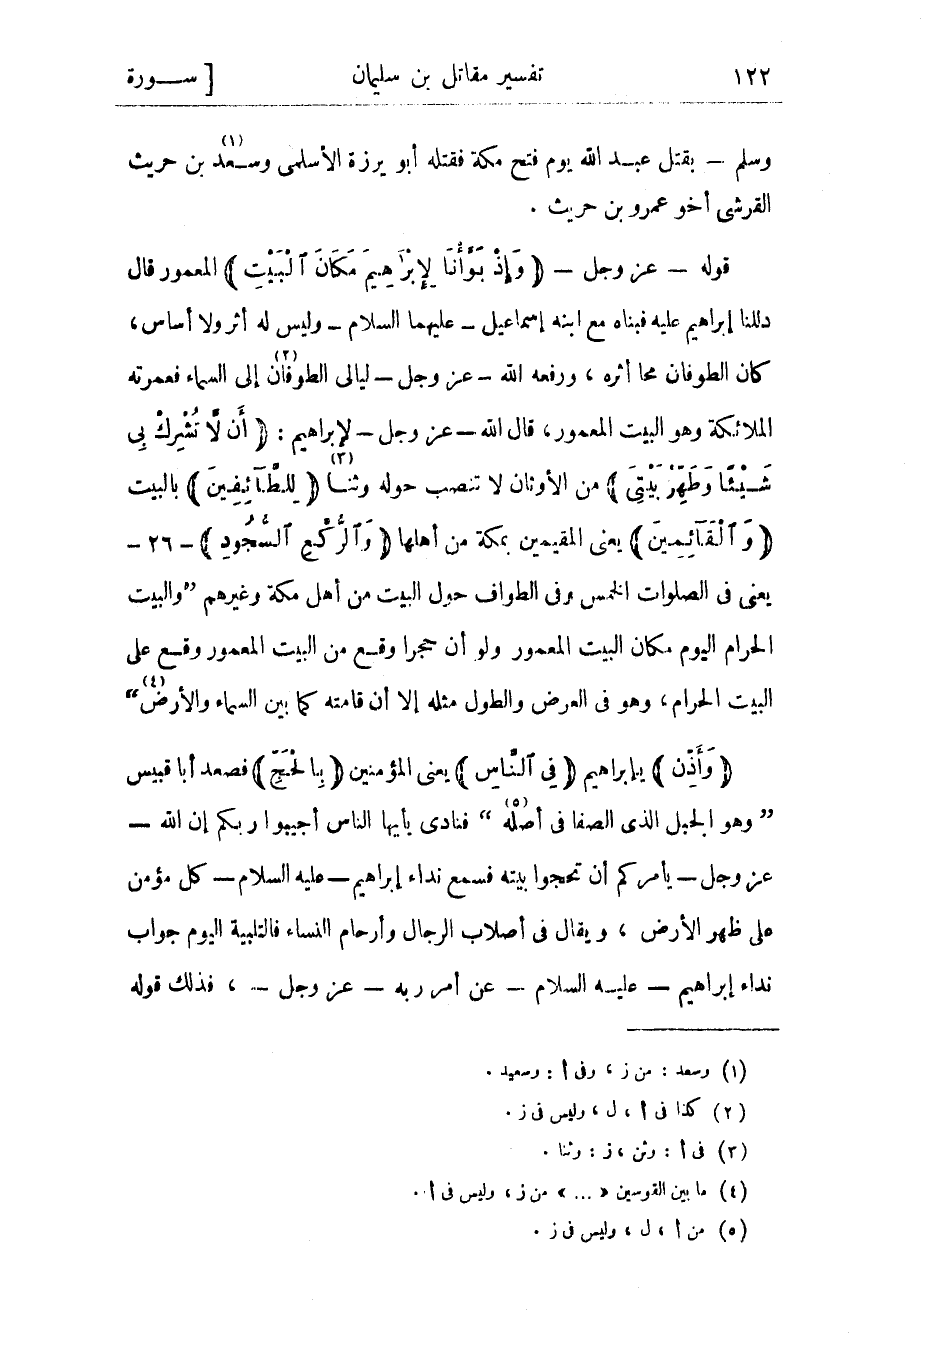 ١٢٢ تفسير مقاتل بن سليمان [ ســورة
وسلم — بقتل عبد الله يوم فتح مكة فقتله أبو برزة الأسلمى وسعد (١) بن حريث
القرشى أخو عمرو بن حريث .
قوله — عز وجل — ﴿ وَإِذْ بَوَّأْنَا لِإِبْرَاهِيمَ مَكَانَ ٱلْبَيْتِ ﴾ المعمور قال
دللنا إبراهيم عليه فبناه مع ابنه إسماعيل — عليهما السلام — وليس له أثر ولا أساس،
كان الطوفان محا أثره ، ورفعه الله — عز وجل — ليالى الطوفان (٢) إلى السماء فعمرته
الملائكة وهو البيت المعمور، قال الله — عز وجل — لإبراهيم : ﴿ أَن لَّا تُشْرِكْ بِى
شَيْئًا وَطَهِّرْ بَيْتِىَ ﴾ من الأوثان لا تنصب حوله وثنا (٣) ﴿ لِلطَّآئِفِينَ ﴾ بالبيت
﴿ وَٱلْقَآئِمِينَ ﴾ يعنى المقيمين بمكة من أهلها ﴿ وَٱلرُّكَّعِ ٱلسُّجُودِ ﴾ — ٢٦ —
يعنى فى الصلوات الخمس وفى الطواف حول البيت من أهل مكة وغيرهم «والبيت
الحرام اليوم مكان البيت المعمور ولو أن حجرا وقع من البيت المعمور وقع على
البيت الحرام، وهو فى العرض والطول مثله إلا أن قامته كما بين السماء والأرض (٤)»
﴿ وَأَذِّن ﴾ يابراهيم ﴿ فِى ٱلنَّاسِ ﴾ يعنى المؤمنين ﴿ بِالْحَجِّ ﴾ فصعد أبا قبيس
« وهو الجبل الذى الصفا فى أصله (٥) » فنادى يأيها الناس أجيبوا ربكم إن الله —
عز وجل — يأمركم أن تحجوا بيته فسمع نداء إبراهيم — عليه السلام — كل مؤمن
على ظهر الأرض ، ويقال فى أصلاب الرجال وأرحام النساء فالتلبية اليوم جواب
نداء إبراهيم — عليه السلام — عن أمر ربه — عز وجل — ، فذلك قوله
(١) وسعد : من ز ، وفى أ : وسعيد .
(٢) كذا فى أ ، ل ، وليس فى ز .
(٣) فى أ : وثن ، ز : وثنا .
(٤) ما بين القوسين « ... » من ز ، وليس فى أ .
(٥) من أ ، ل ، وليس فى ز .